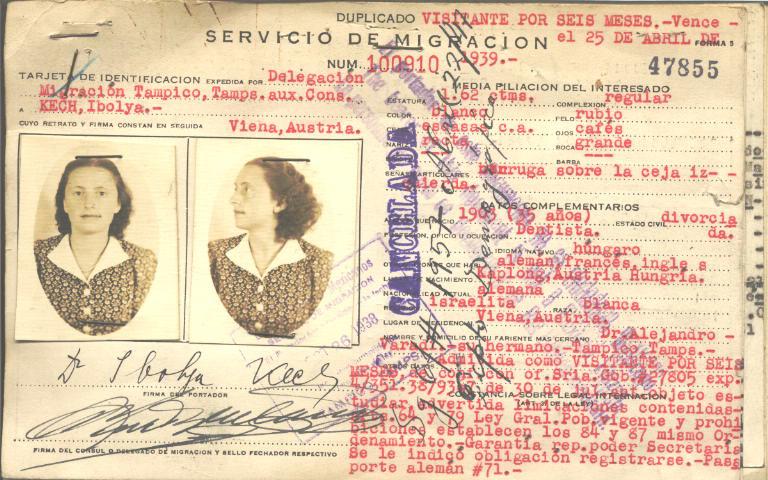 DUPLICADO VISITANTE POR SEIS MESES.-Vence -
SERVICIO DE MIGRACION el 25 DE ABRIL DE
FORMA 5
NUM. 100910 1939.-
47855
TARJETA DE IDENTIFICACION EXPEDIDA POR Delegación
Migración Tampico,Tamps.aux.Cons.
A KECH,Ibolya.-
CUYO RETRATO Y FIRMA CONSTAN EN SEGUIDA
Viena,Austria.
MEDIA FILIACION DEL INTERESADO
ESTATURA 1.62 ctms. COMPLEXION regular
COLOR blanco PELO rubio
escasas c.a. OJOS cafés
NARIZ recta BOCA grande
BARBA ---
SEÑAS PARTICULARES berruga sobre la ceja iz--
quierda.
DATOS COMPLEMENTARIOS
1903 (35 años) ESTADO CIVIL divorcia
da.
PROFESION, OFICIO U OCUPACION Dentista.
IDIOMA NATIVO húngaro
alemán,francés,inglés
Kaplong,Austria Hungria.
NACIONALIDAD ACTUAL alemana
Israelita RAZA Blanca
LUGAR DE RESIDENCIA Viena,Austria.
NOMBRE Y DOMICILIO DE SU PARIENTE MAS CERCANO Dr.Alejandro -
Varadi.-su hermano.-Tampico,Tamps.-
Admitida como VISITANTE POR SEIS
MESES de con of.Sria.Gob.#27805 exp.
4/352.38793 de 30 de jul. objeto es-
CONSTANCIA SOBRE LEGAL INTERNACION
tudiar,advertida limitaciones contenidas-
64 y 79 Ley Gral.Pob.vigente y prohi
biciones establecen los 84 y 87 mismo Or-
denamiento.-Garantía rep.poder Secretaría
Se le indicó obligación registrarse.-Pasa
porte alemán #71.-
CANCELADA
Dr Ibolya Kech
FIRMA DEL PORTADOR
FIRMA DEL CONSUL O DELEGADO DE MIGRACION Y SELLO FECHADOR RESPECTIVO